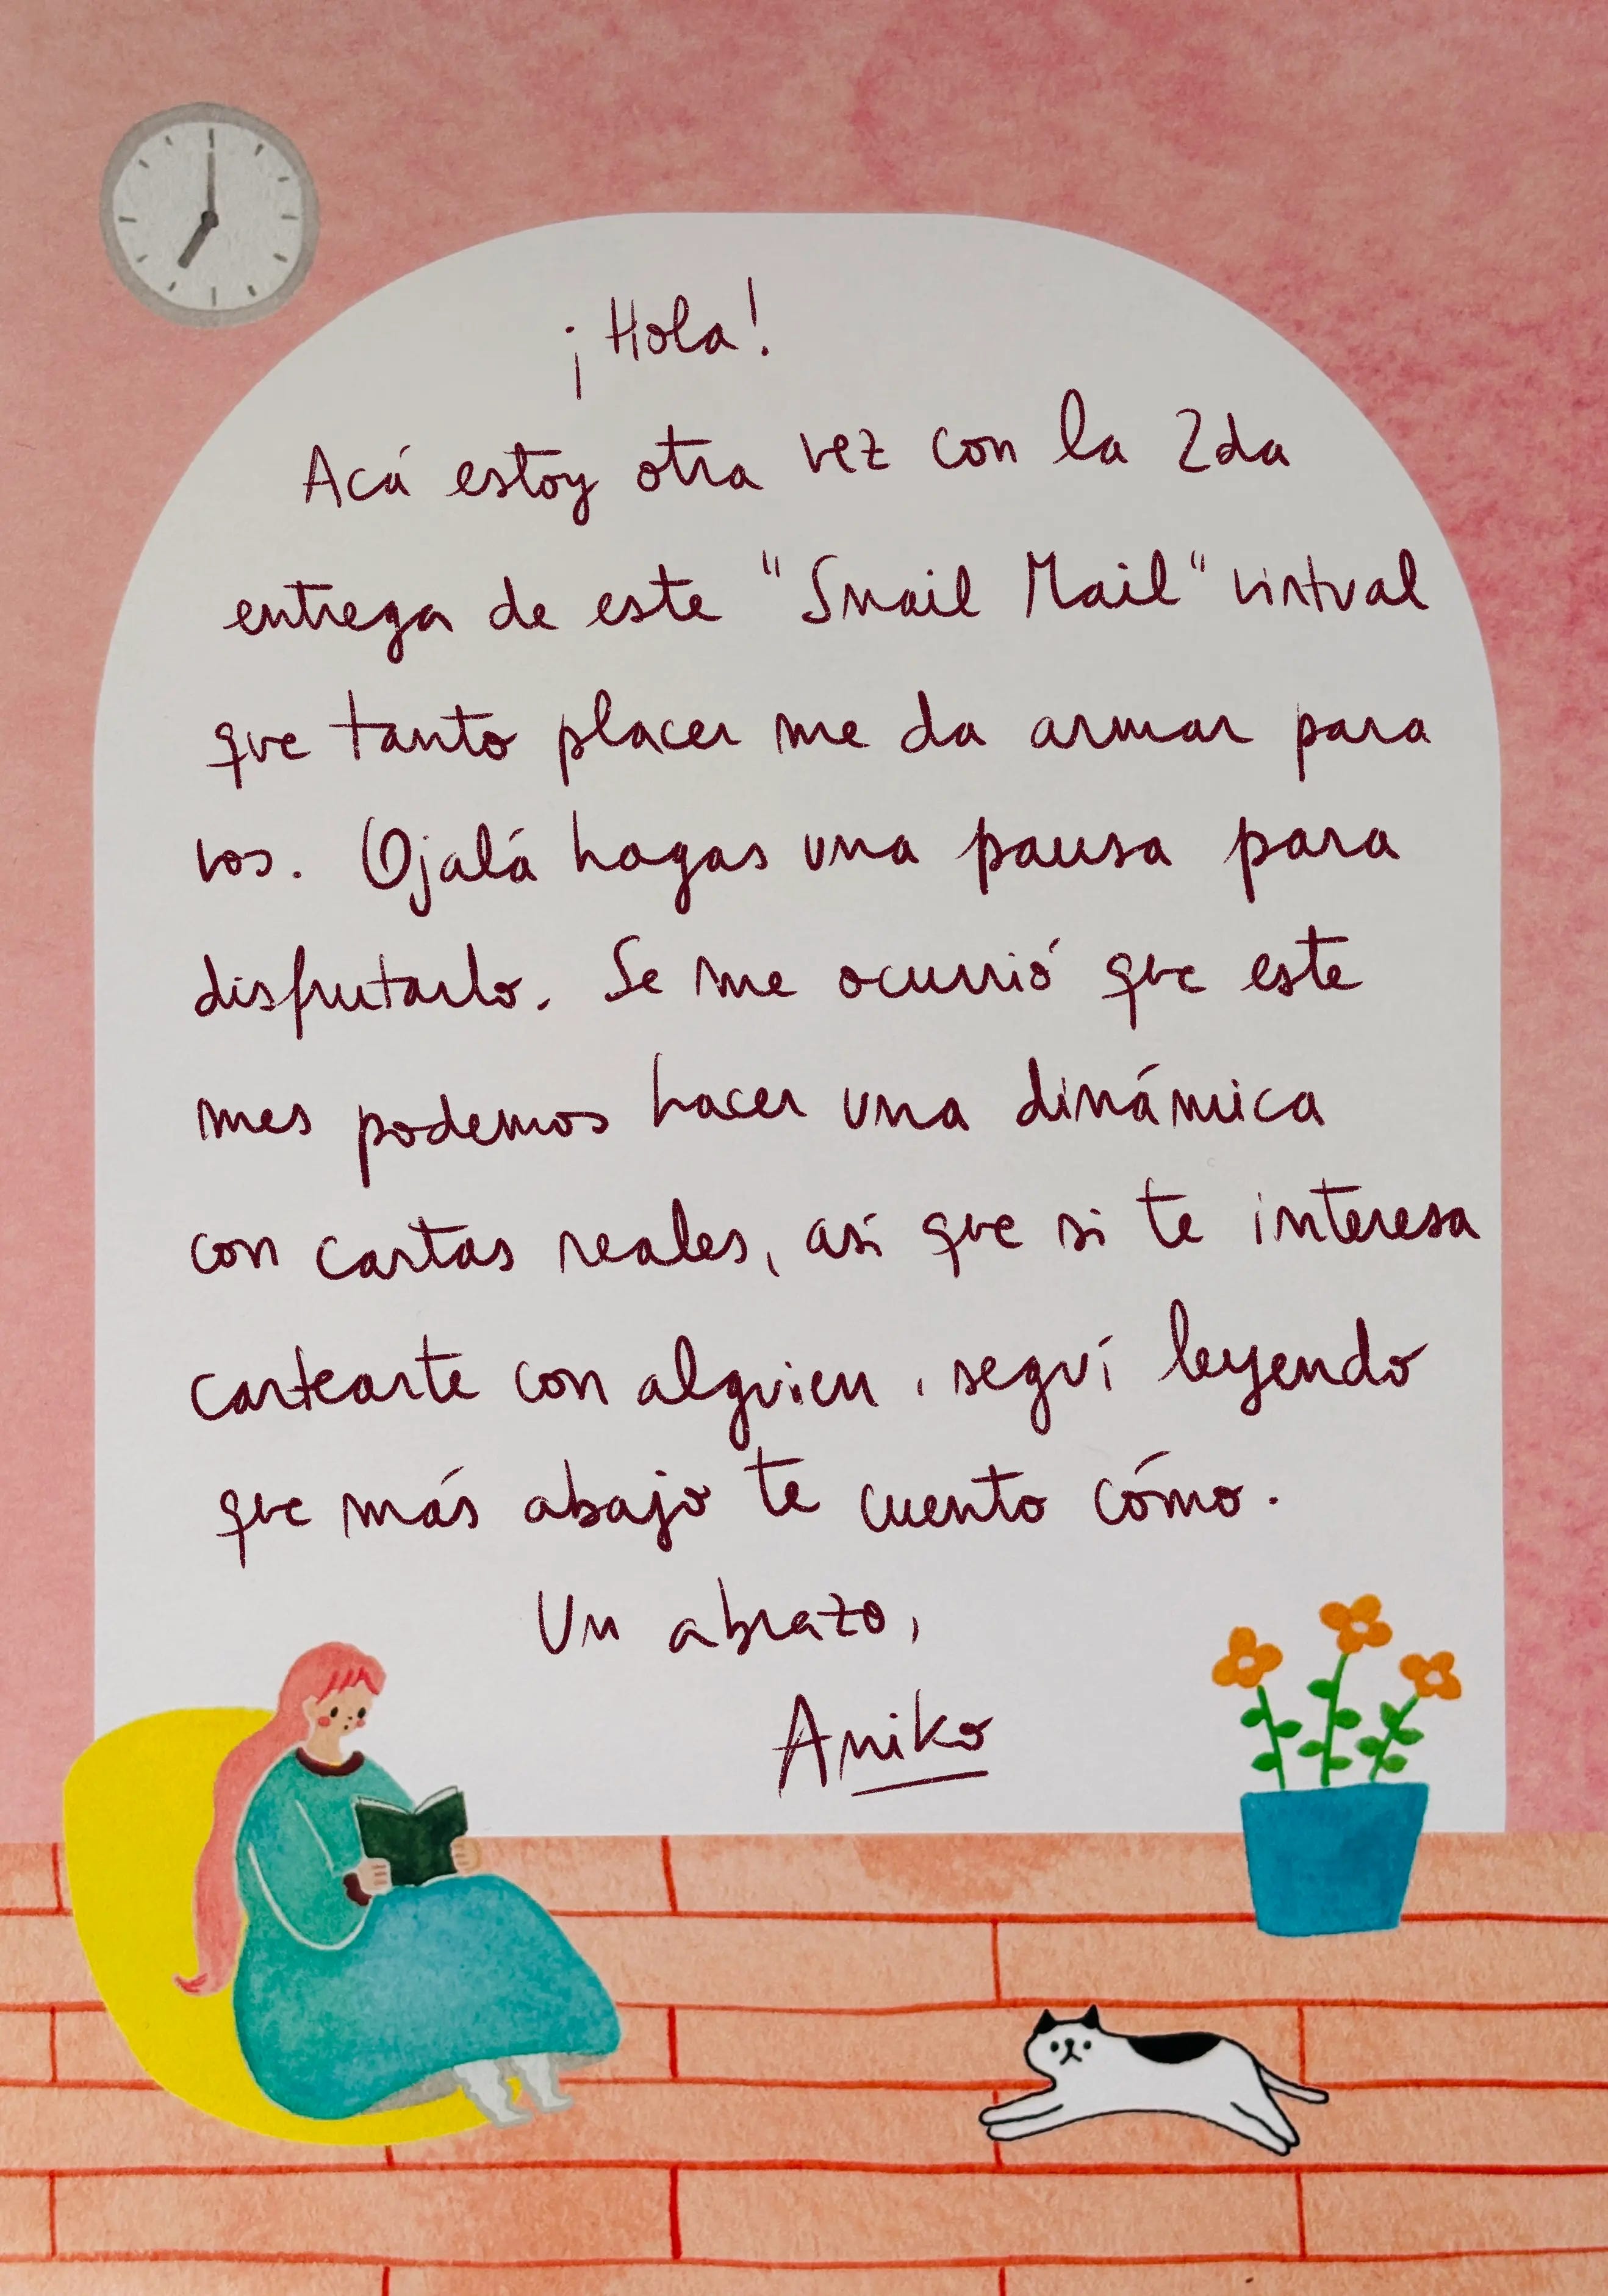 ¡Hola!
Acá estoy otra vez con la 2da
entrega de este "Snail Mail" virtual
que tanto placer me da armar para
vos. Ojalá hagas una pausa para
disfrutarlo. Se me ocurrió que este
mes podemos hacer una dinámica
con cartas reales, así que si te interesa
cartearte con alguien, seguí leyendo
que más abajo te cuento cómo.
Un abrazo,
Aniko